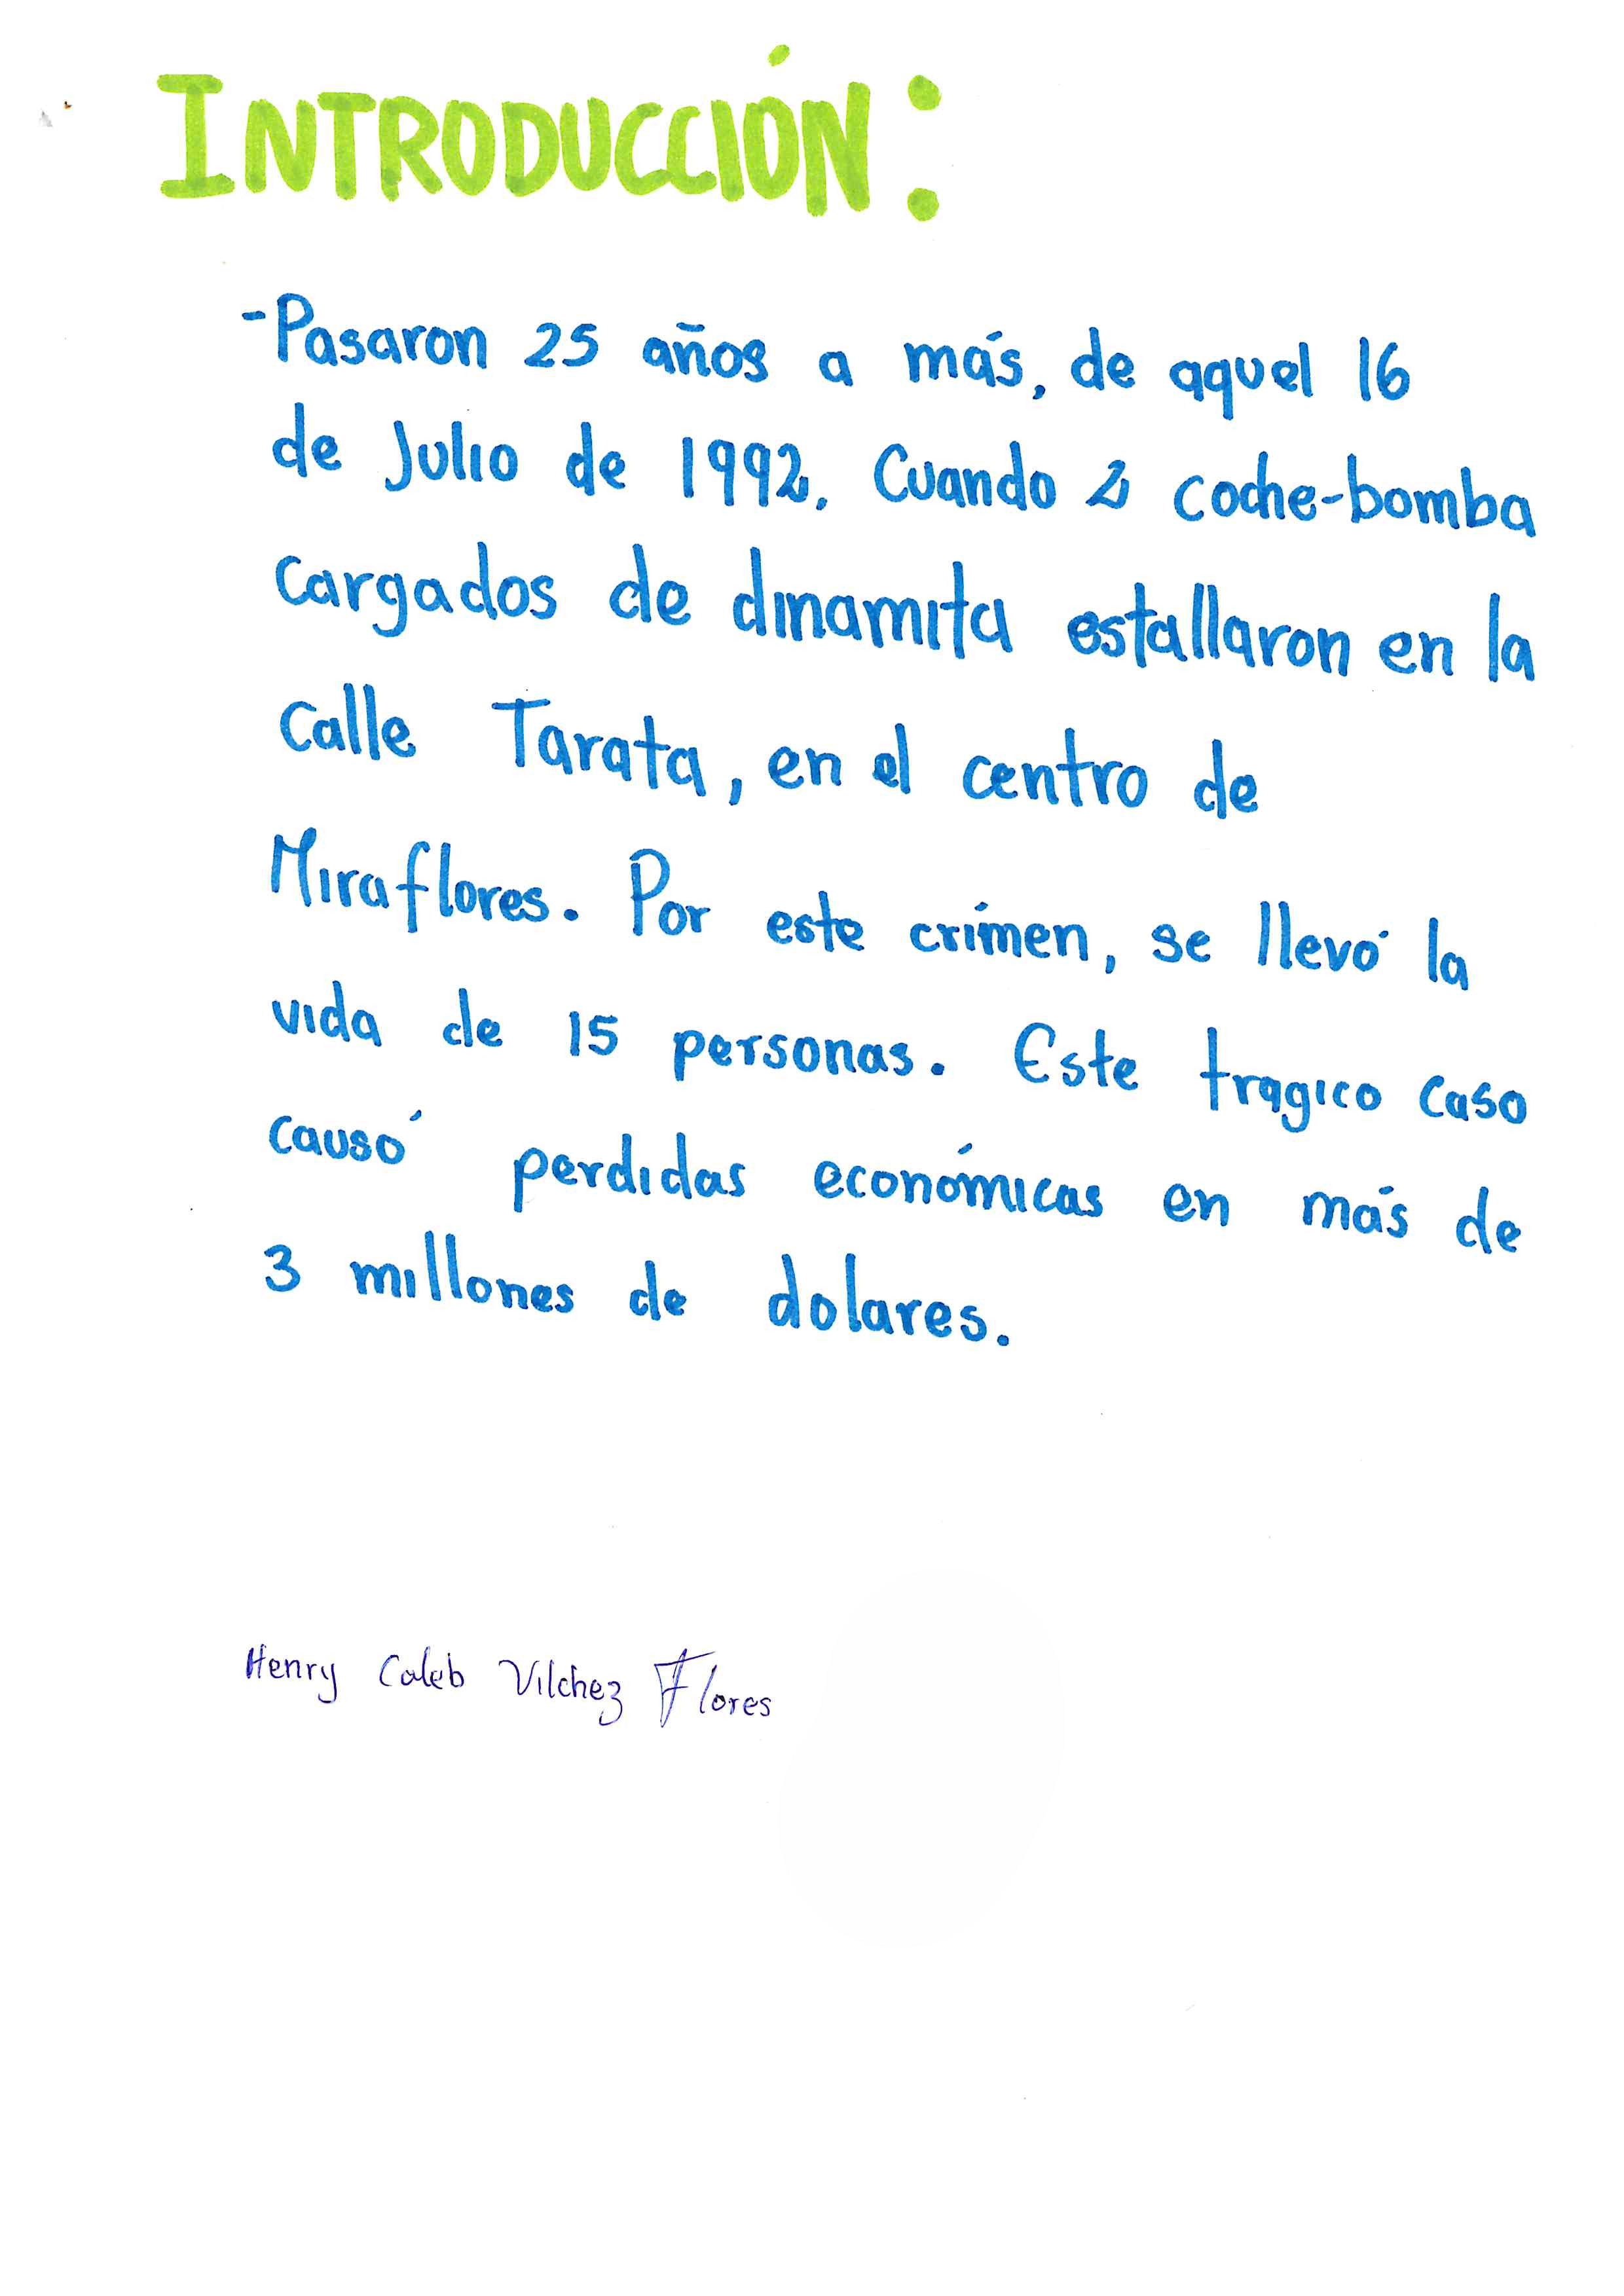 INTRODUCCIÓN:
-Pasaron 25 años a más, de aquel 16
de Julio de 1992. Cuando 2 coche-bomba
cargados de dinamita estallaron en la
calle Tarata, en el centro de
Miraflores. Por este crímen, se llevó la
vida de 15 personas. Este tragico caso
causó perdidas económicas en más de
3 millones de dolares.
Henry Caleb Vilchez Flores